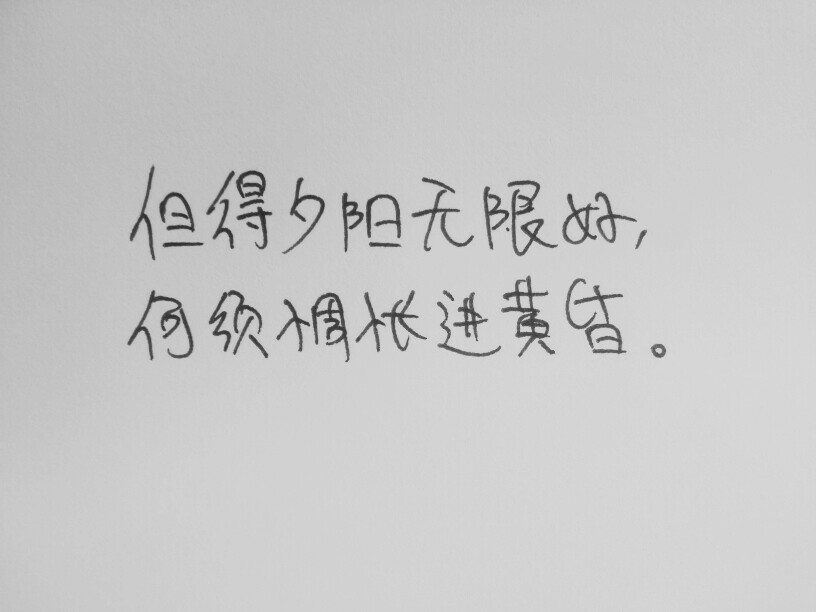 但得夕阳无限好,
何须惆怅进黄昏。